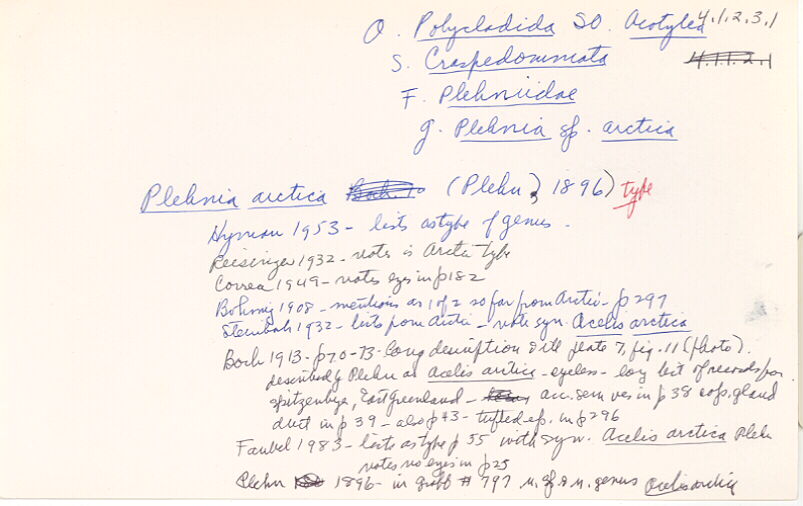 O. Polycladida SO. Acotylea 4.1.2.3.1
S. Craspedommata 4.11.2.1
F. Plehniidae
g. Plehnia sp. arctica
Plehnia arctica (Plehn, 1896) type
Hyman 1953 - lists as type of genus.
Reisinger 1932 - notes is Arctic type
Correa 1949 - notes eyes in p182
Bohmig 1908 - mentions as 1 of 2 so far from Arctic - p297
Steinboh 1932 - lists from Arctic - note syn Acelis arctica
Boch 1913 - p70-73 - long description with plate 7, fig. 11 (photo).
described by Plehn as Acelis arctica - eyeless - long list of records from
Spitzenbge, East Greenland - acc. sem ves in p 38 cop. gland
duct in p 39 - also p 43 - tufted ep. in p296
Faubel 1983 - lists as type p 55 with syn. Acelis arctica Plehn
notes no eyes in p25
Plehn 1896 - in Graff # 797 n. genus Acelis arctica